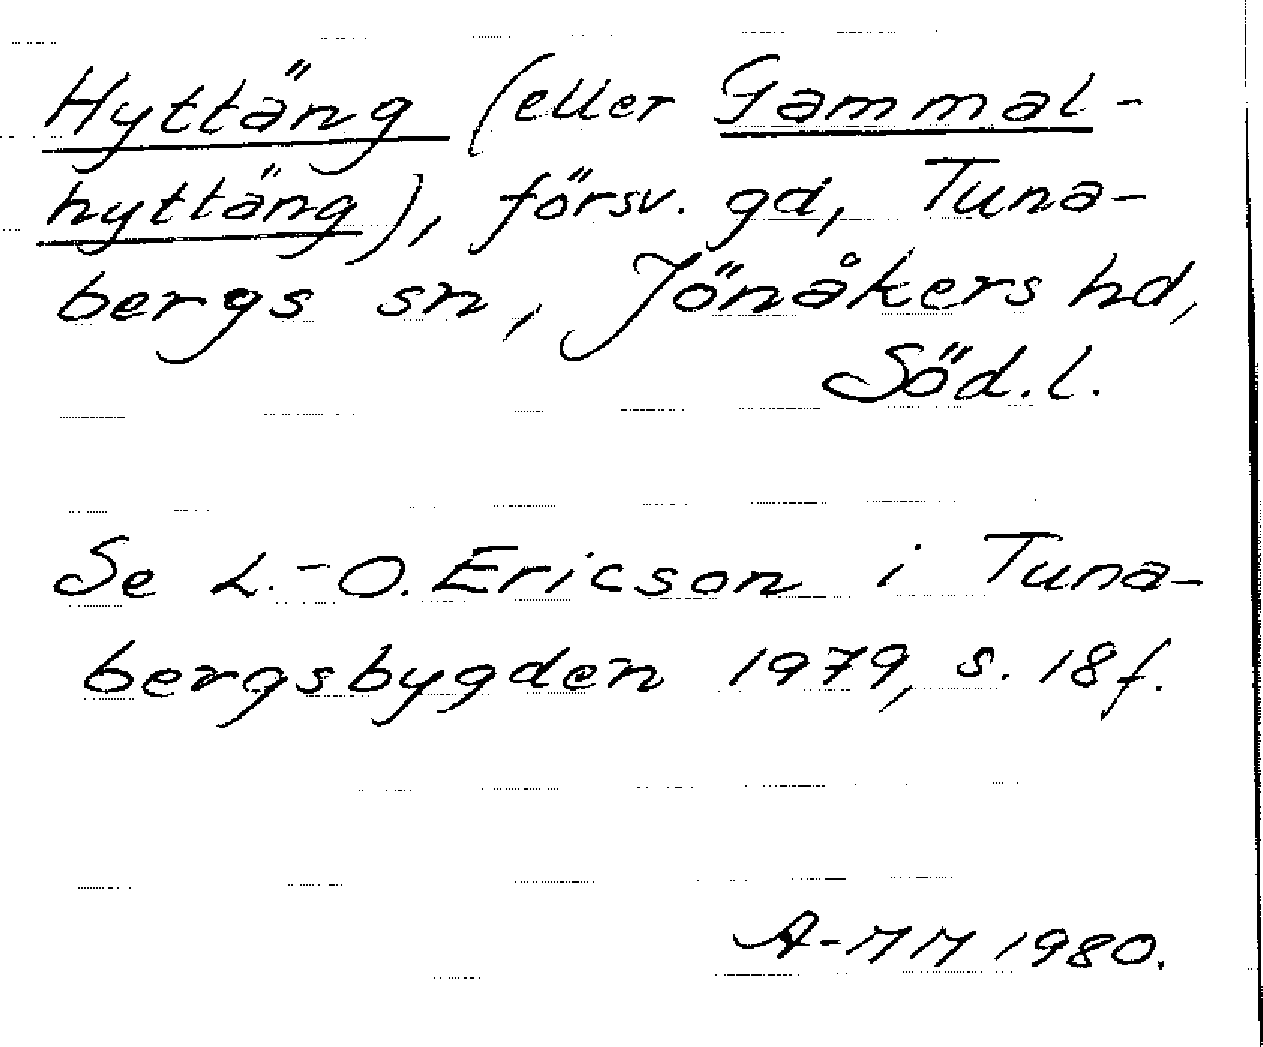 Hyttäng (eller Gammal-
hyttäng), försv. gd, Tuna-
bergs sn, Jönåkers hd,
Söd.l.
Se L.-O. Ericson i Tuna-
bergsbygden 1979, s. 18f.
A-MM 1980.